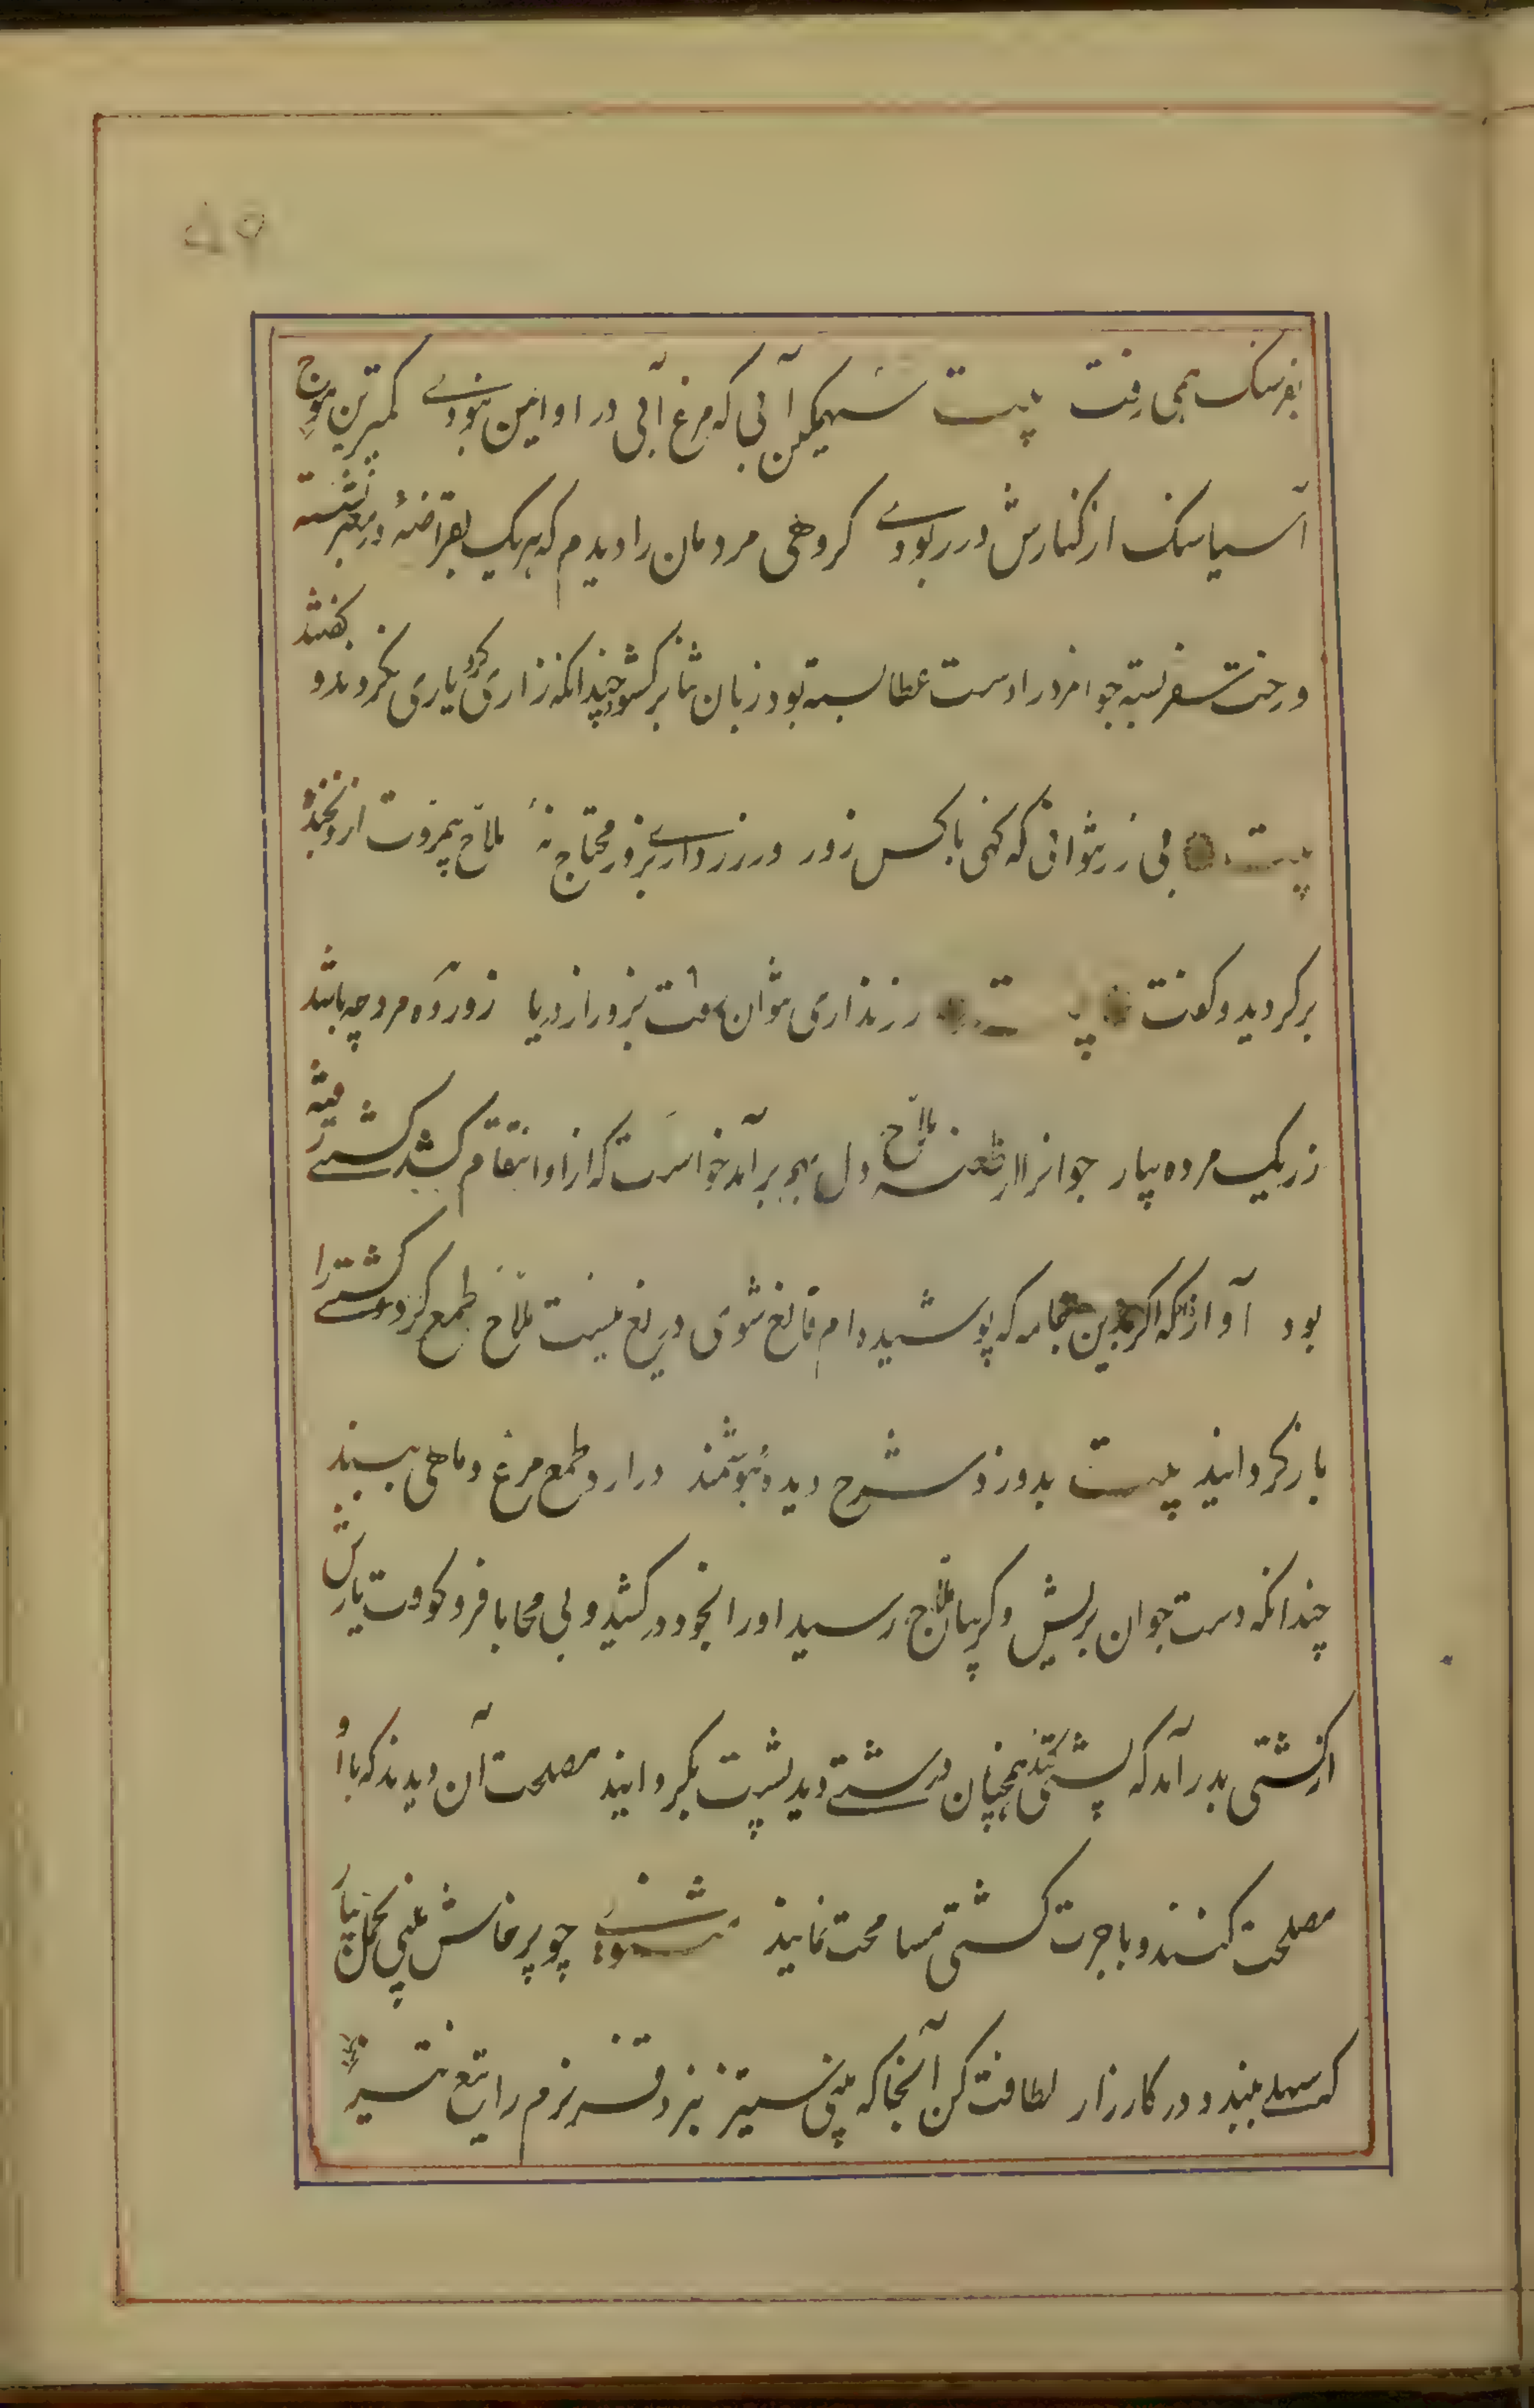 ۵۹
بفرسنک همی رفت بیت سهمکین آبی که مرغ آبی در او ایمن نبودے کمترین موج
آسیا سنک از کنارش در ربودے کروهی مردمان را دیدم که هر یک بقراضهٔ در معبر نشسته
و رخت سفر بسته جوانمرد را دست عطا بسته بود زبان ثنا برکشود چندانکه زاری کرد یاری نکردند و کفتند
بیت بی زر نتوانی که کنی با کس زور ور زر دارے بزور محتاج نهٔ ملاح بیمروت ازو بخنده
برکردید و کفت بیت زر نداری نتوان رفت بزور از دریا زور ده مرده چه باشد
زر یک مرده بیار جوانرا از طعنه ملاح دل بهم برآمد خواست که از او انتقام کشد کشتے رفته
بود آواز داد که اکر بدین جامه که پوشیده دام قانع شوی دریغ نیست ملاح طمع کرد و کشتے را
بازکردانید بیت بدوزد شره دیدهٔ هوشمند درآرد طمع مرغ و ماهی ببند
چندانکه دست جوان بریش و کریبان ملاح رسید او را بخود درکشید و بی محابا فرو کوفت یارش
از کشتی بدر آمد که پشتی کند همچنان درشتے دید پشت بکردانید مصلحت آن دیدند که با او
مصلحت کنند و باجرت کشتی مسامحت نمایند مثنوے چو پرخاش بینی تحمل بیار
که سهلے ببندد در کارزار لطافت کن آنجا که بینی ستیز نبرد قز نرم را تیغ تیز